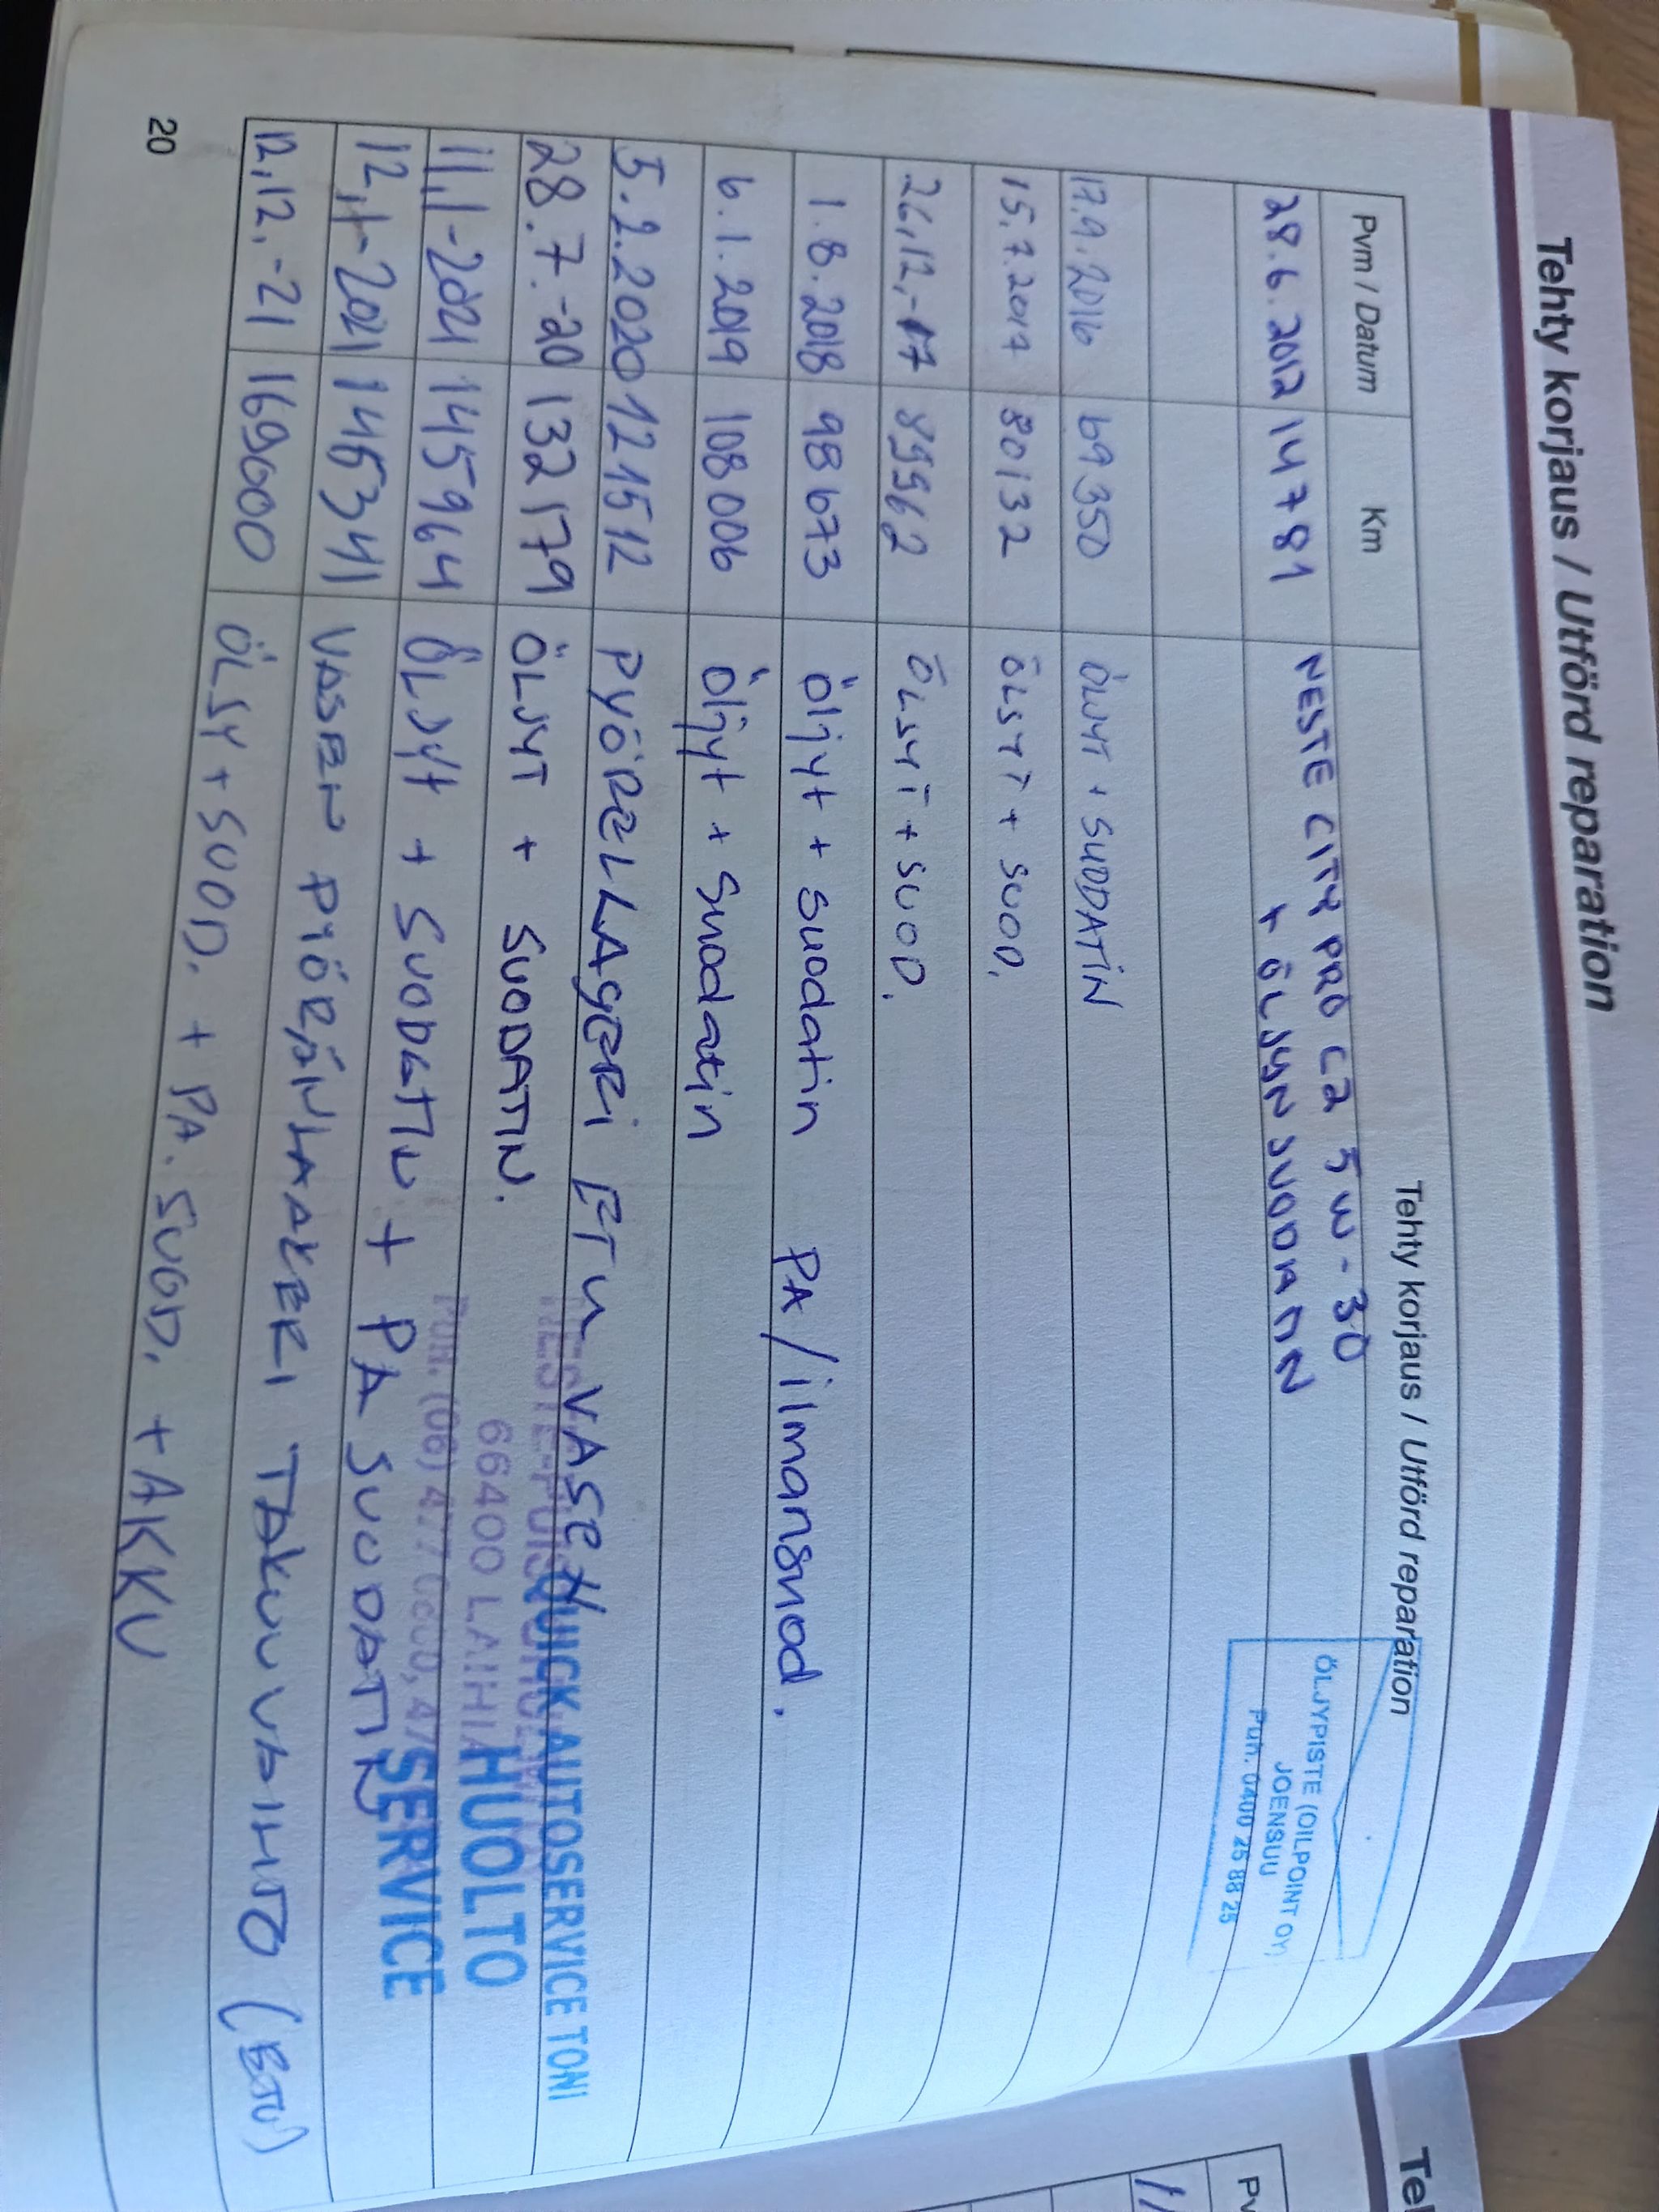 Tehty korjaus / Utförd reparation
Pvm / Datum Km Tehty korjaus / Utförd reparation
28.6.2012 147 81 NESTE CITY PRO C2 5W-30
+ ÖLJYN SUODATIN
ÖLJYPISTE (OILPOINT OY)
JOENSUU
Puh. 0400 25 88 25
17.9.2016 69 350 ÖLJYT + SUODATIN
15.7.2017 80132 ÖLJYT + SUOD.
26.12.-17 89962 ÖLJYT + SUOD.
1.8.2018 98 673 Öljyt + suodatin PA/ilmansuod.
6.1.2019 108 006 Öljyt + Suodatin
5.2.2020 121512 PYÖRELLAGERI ETU VASEN
28.7.-20 132179 ÖLJYT + SUODATIN.
QUICK AUTOSERVICE TONI
66400 LAIHIA
HUOLTO
Puh. (06) 477
SERVICE
11.1-2021 145964 ÖLJYt + SUODATIN + PA SUODATIN
12.1-2021 146341 VASEN PYÖRÄNLAAKERI TAKUUVAIHTO (ETU)
12.12.-21 169000 ÖLJY + SUOD. + PA. SUOD. + AKKU
20
Te
Pv